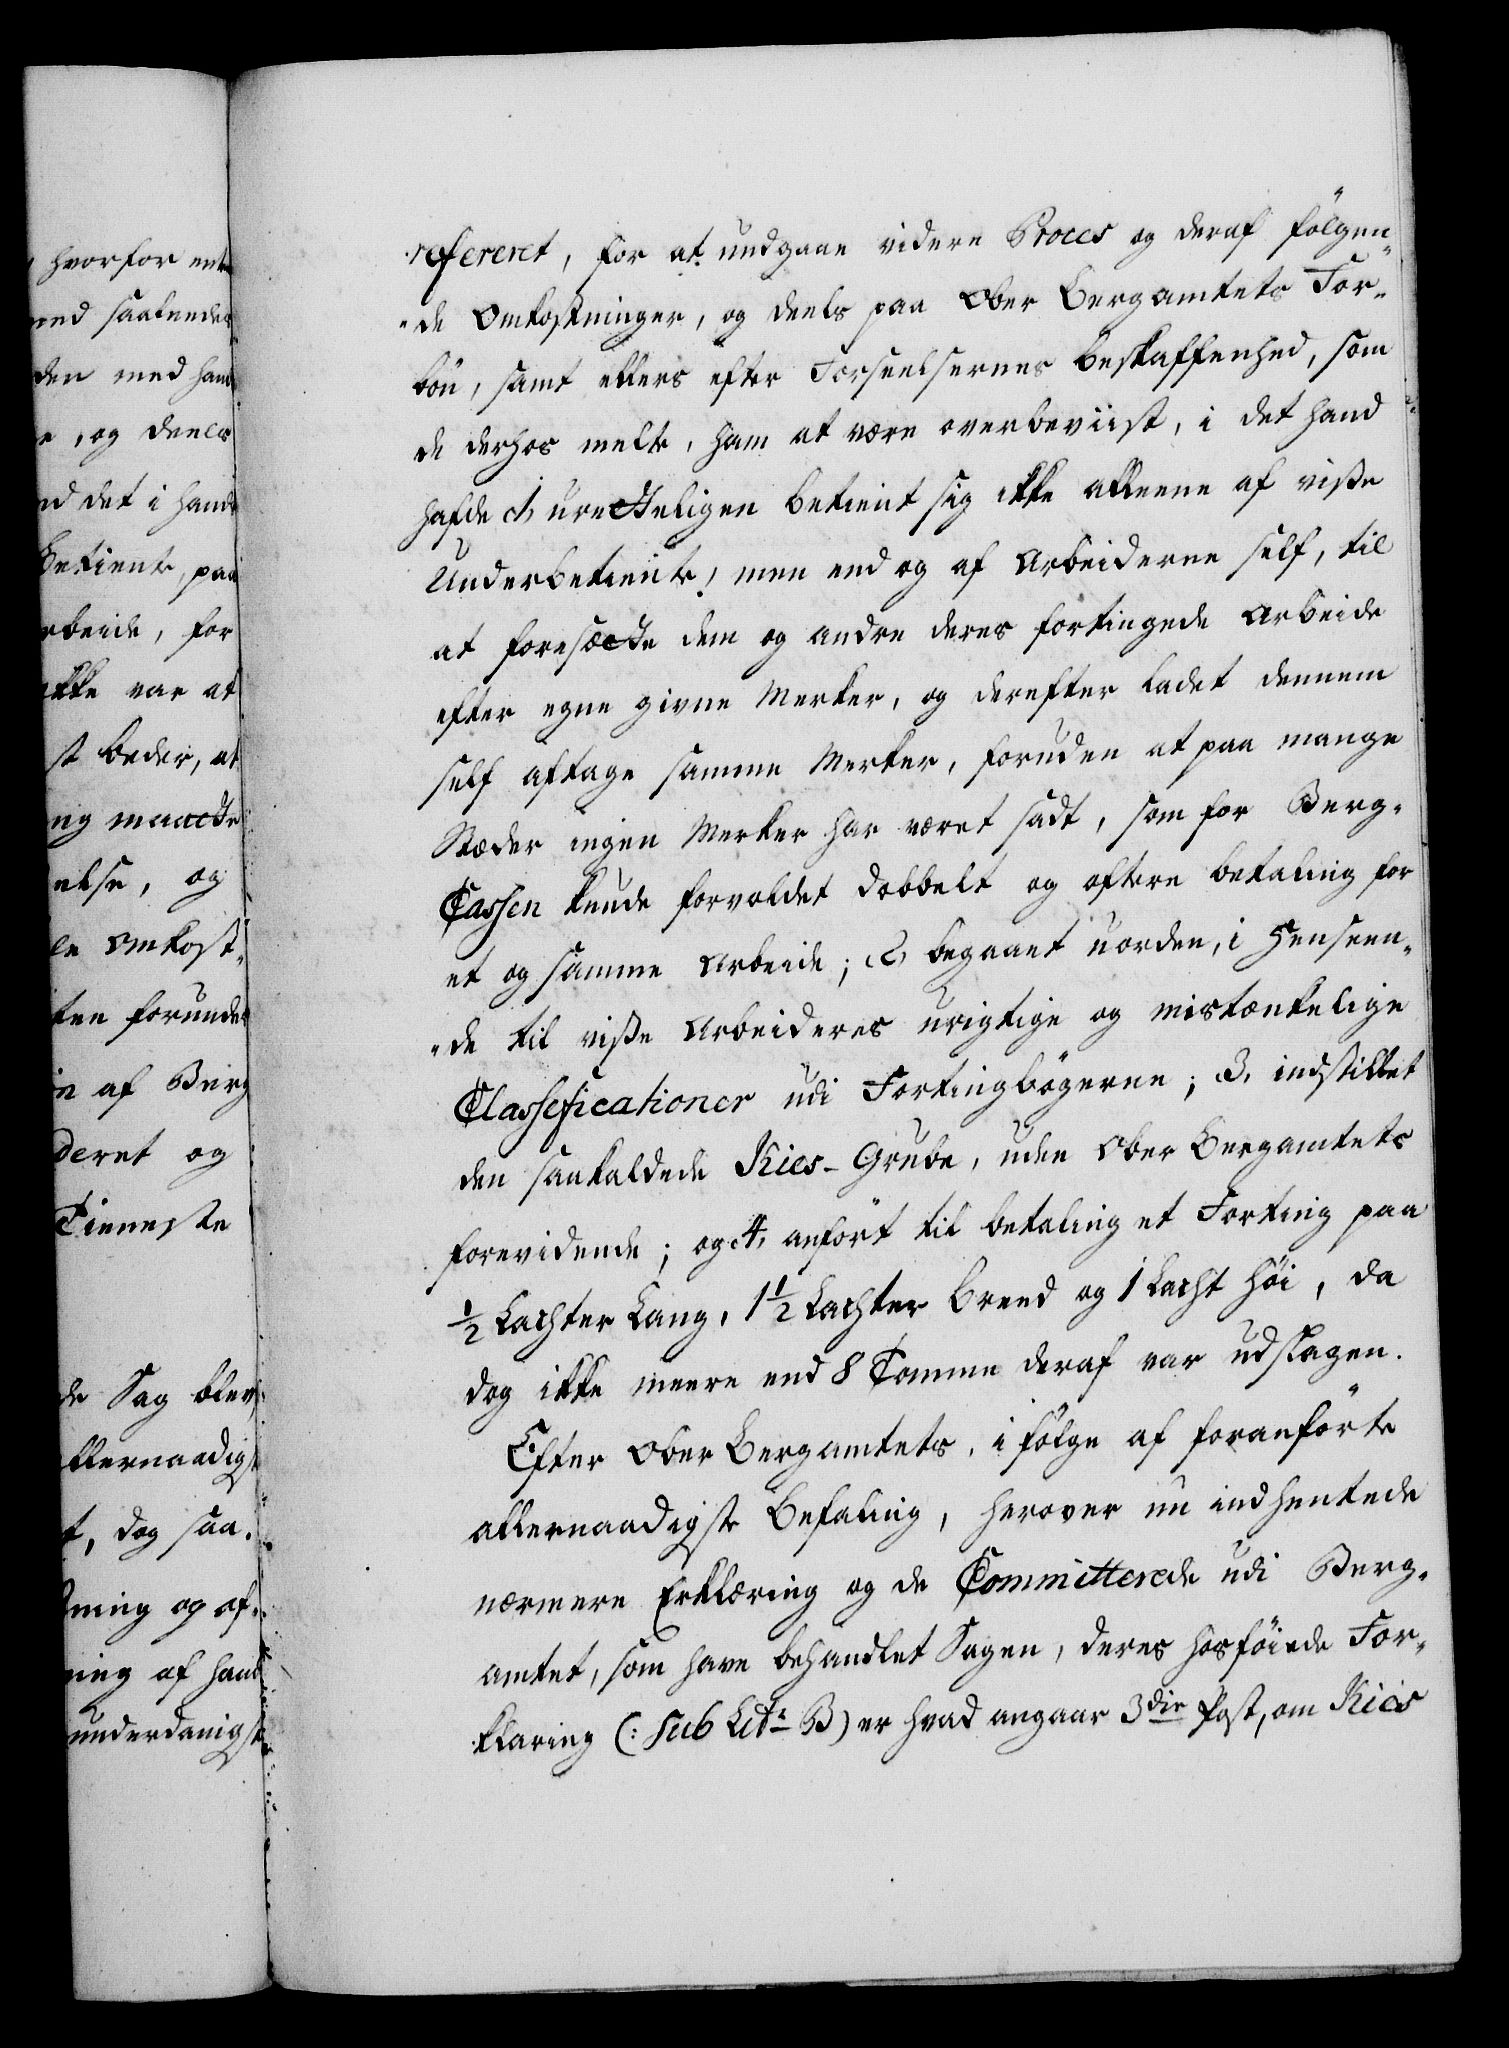 hvorfor ent
med saaleedes
den med hand
e, og deels
ed det i hands
Betiente, paa
rbeide, for
ikke var at
st beder, at
ng maatte
else, og
le Omkost-
ten forunder
in af Berg
deret og
Tieneste
de Sag blev
allernaadigst
t, dog saa-
ning og af-
ning af hand
underdanigst
refereret, for at undgaae videre Proces og deraf følgen-
-de Omkostninger, og deels paa Ober Bergamtets For-
bøn, samt ellers efter Forseelsernes beskaffenhed, som
de derhos melte, ham at være overbeviist, i det hand
hafde 1, urætteligen betient sig ikke alleene af viße
Underbetiente, men end og af Arbeiderne self, til
at foresætte dem og andre deres fortingede Arbeide
efter egne givne Merker, og derefter ladet dennem
self aftage samme Merker, foruden at paa mange
Stæder ingen Merker har været sadt, som for Berg-
Cassen kunde forvoldet dobbelt og oftere betaling for
et og samme Arbeide; 2, begaaet uorden, i Henseen-
-de til viße Arbeideres urigtige og mistænkelige
Classeficationer udi Fortingbøgerne; 3, indstillet
den saakaldede Kies-Grube, uden Ober Bergamtets
forevidende; og 4, anført til betaling et Forting paa
½ Lachter Lang, 1½ Lachter breed og 1 Lacht høi, da
dog ikke meere end 8 Tomme deraf var udslagen.
Efter Ober Bergamtets, i følge af foranførte
allernaadigste Befaling, herover nu indhentede
nærmere Erklæring og de Committerede udi Berg-
amtet, som have behandlet Sagen, deres hosføiede For-
klaring (: sub Litr. B) er hvad angaar 3die Post, om Kies